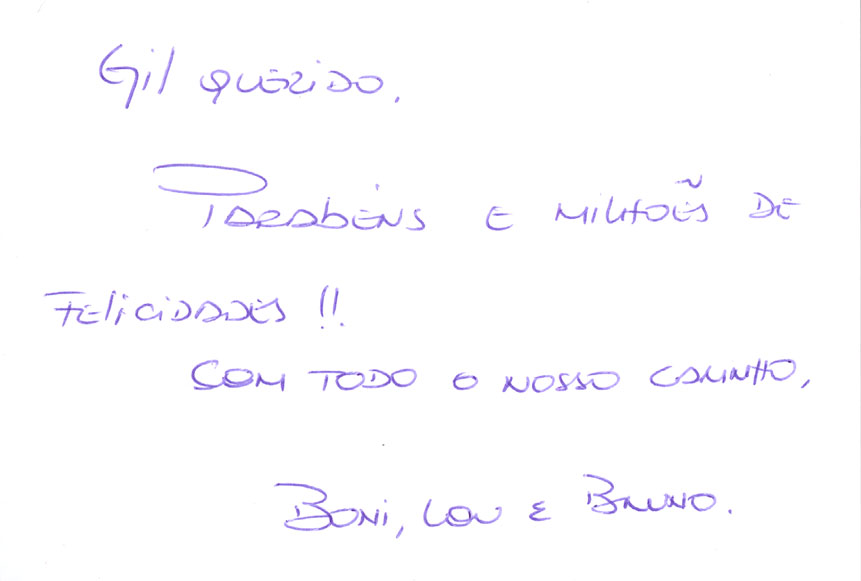 Gil querido,
Parabéns e milhões de
felicidades!!
Com todo o nosso carinho,
Boni, Lou e Bruno.